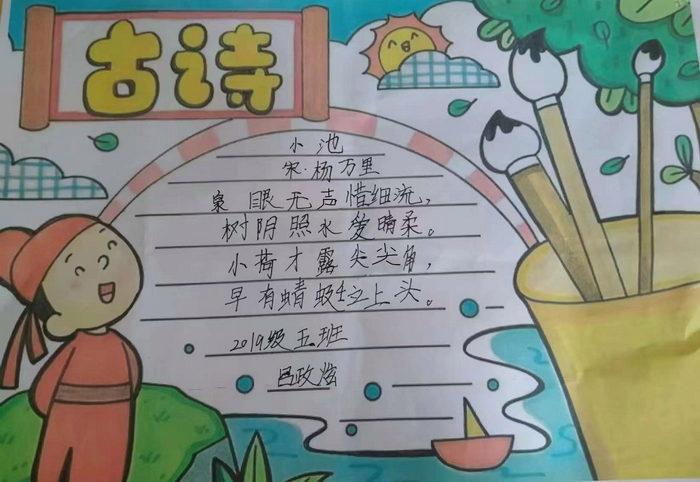 古诗
小池
宋·杨万里
泉眼无声惜细流，
树阴照水爱晴柔。
小荷才露尖尖角，
早有蜻蜓立上头。
2019级五班
吕政